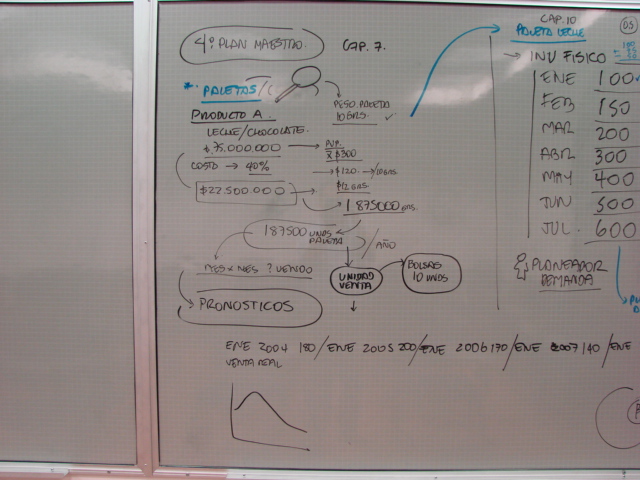 4º PLAN MAESTRO. CAP. 7.
* PALETAS/
PESO PALETA
10 GRS.
PRODUCTO A.
LECHE/CHOCOLATE.
$75.000.000
X $300
COSTO → 40%
→ $120 → /10 GRS
$22.500.000
$12 GRS
1.875000 GRS.
187500 UNDS
PALETA
/AÑO
MES X MES ? VENDO
UNIDAD
VENTA
BOLSAS
10 UNDS
PRONOSTICOS
ENE 2004 180/ENE 2005 200/ENE 2006 170/ENE 2007 140/ENE
VENTA REAL
CAP. 10
PALETA LECHE
→ INV FISICO
ENE 100
FEB 150
MAR 200
ABR 300
MAY 400
JUN 500
JUL. 600
PLANEADOR
DEMANDA